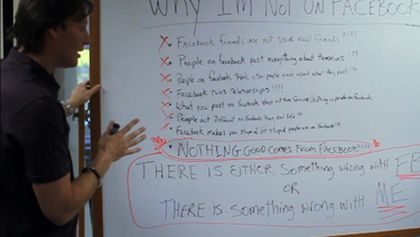 WHY I'M NOT ON FACEBOOK
Facebook friends are not your real friends?!?!
People on facebook post everything about themselves !?!
People on facebook think other people care about what they post!?!
Facebook ruins relationships!!!!
What you post on Facebook stays at there forever,
People act Different on Facebook than real life?!
Facebook makes you
NOTHING GOOD COMES FROM FACEBOOK
THERE IS EITHER SOMETHING WRONG WITH FB
OR
THERE IS SOMETHING WRONG WITH ME